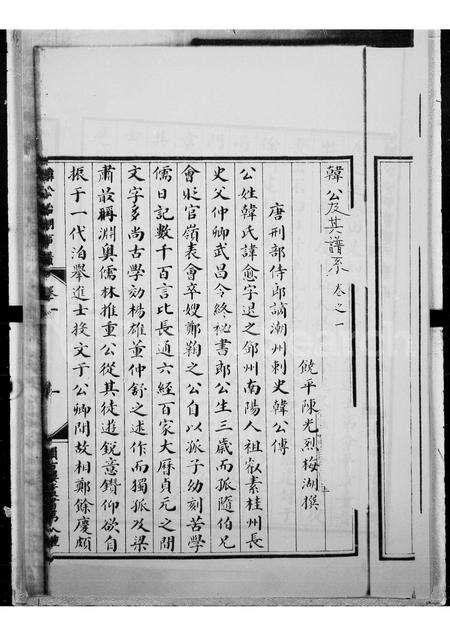 韓公及其譜系 卷之一
饒平陳光烈梅湖撰
唐刑部侍郎謫潮州刺史韓公傳
公姓韓氏諱愈字退之鄧州南陽人祖叡素桂州長
史父仲卿武昌令終祕書郎公生三歲而孤隨伯兄
會貶官嶺表會卒嫂鄭鞠之公自以孤子幼刻苦學
儒日記數千百言比長通六經百家大曆貞元之間
文字多尚古學効楊雄董仲舒之述作而獨孤及梁
肅最稱淵奧儒林推重公從其徒遊銳意鑽仰欲自
振于一代洎舉進士投文于公卿間故相鄭餘慶頗
卷一
一